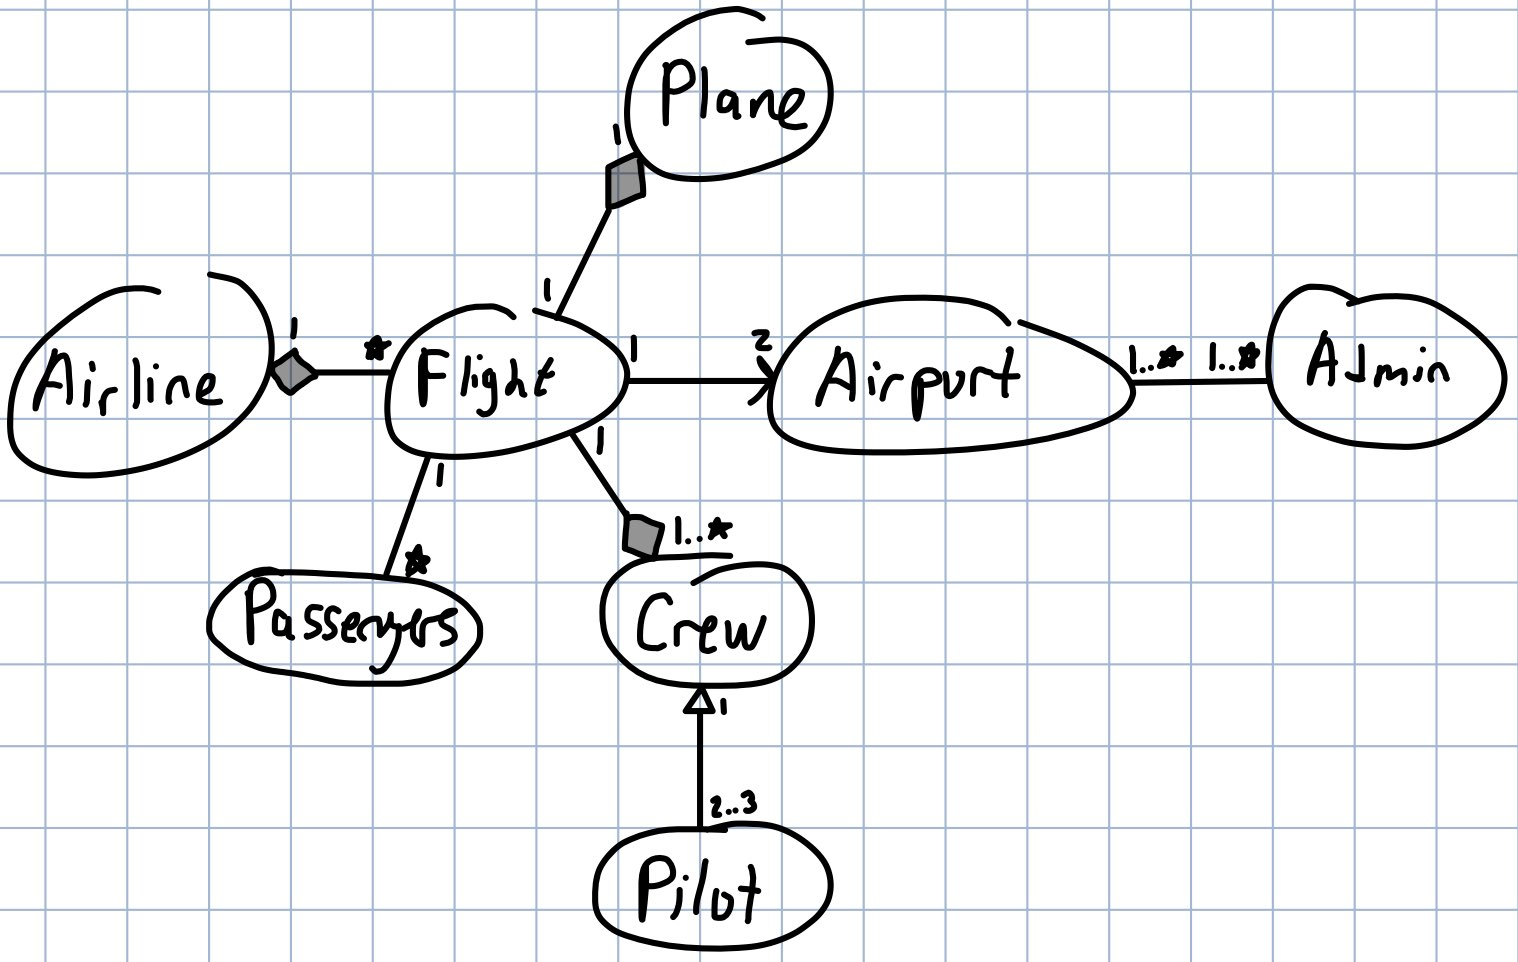 Plane
1
1
Airline
1
*
Flight
1
2
Airport
1..*
1..*
Admin
1
1
*
1..*
Passengers
Crew
1
2..3
Pilot